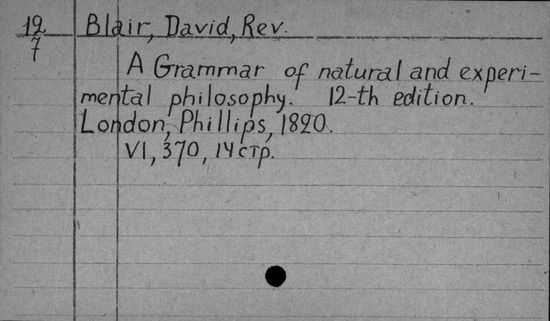 12 Blair, David, Rev.
7
A Grammar of natural and experi-
mental philosophy. 12-th edition.
London, Phillips, 1820.
VI, 370, 14 стр.